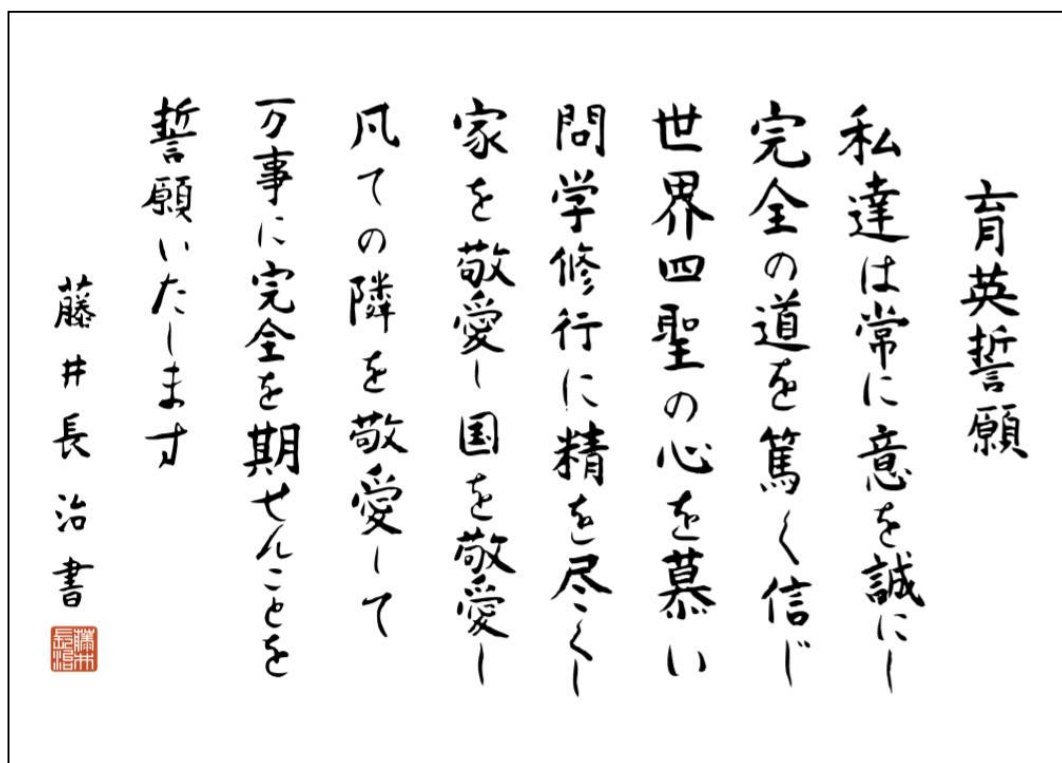 育英誓願
私達は常に意を誠にし
完全の道を篤く信じ
世界四聖の心を慕い
問学修行に精を尽くし
家を敬愛し国を敬愛し
凡ての隣を敬愛して
万事に完全を期せんことを
誓願いたします
藤井長治書
藤井
長治